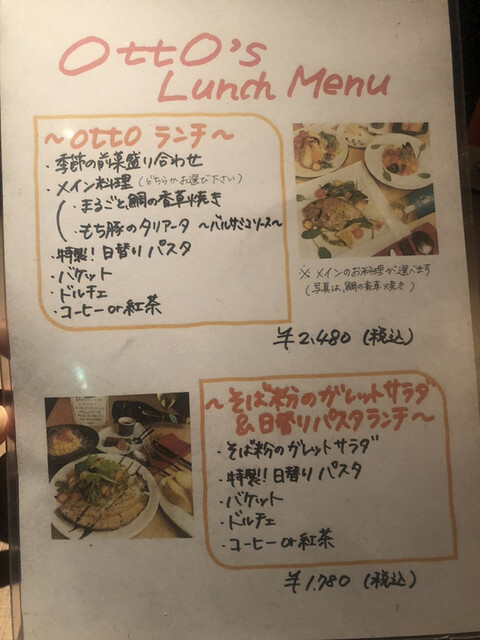 OttO's
Lunch Menu
～OttO ランチ～
・季節の前菜盛り合わせ
・メイン料理 (どちらかお選び下さい)
・まるごと、鯛の香草焼き
・もち豚のタリアータ ～バルサミコソース～
・特製！日替り パスタ
・バケット
・ドルチェ
・コーヒー or 紅茶
※ メインのお料理が選べます
(写真は、鯛の香草焼き)
¥2,480 (税込)
～そば粉のガレットサラダ
& 日替りパスタランチ～
・そば粉のガレットサラダ
・特製！日替り パスタ
・バケット
・ドルチェ
・コーヒー or 紅茶
¥1,780 (税込)